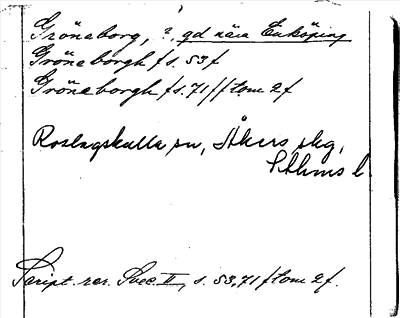 Gröneborg, ?, gd nära Enköping
Gröneborgh fs. 53f
Gröneborgh fs. 71 f/tom 2f
Roslagskulla sn, Åkers skg,
Sthms l.
Script. rer. Svec. II, s. 53, 71 f tom 2f.